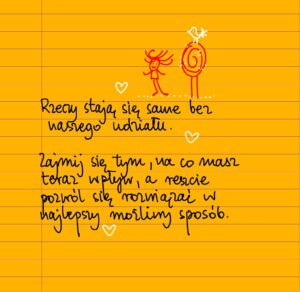 Rzeczy stają się same bez
naszego udziału.
Zajmij się tym, na co masz
teraz wpływ, a reszcie
pozwól się rozwiązać w
najlepszy możliwy sposób.